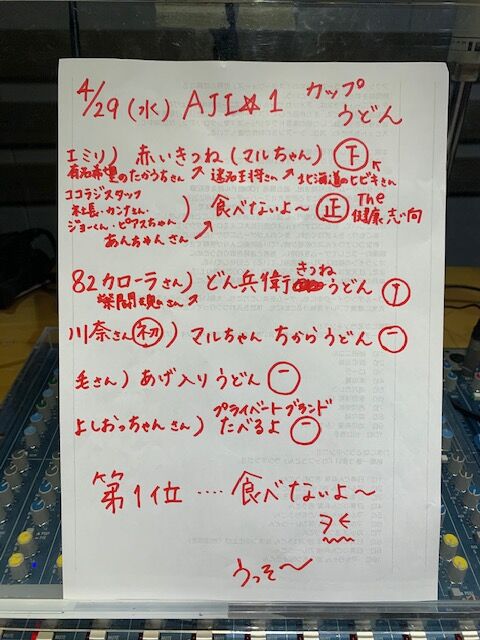 4/29(水) AJI☆1 カップ
うどん
エミリ) 赤いきつね(マルちゃん) 下
有名希望のたかうちさん 迷名王将さん 北海道のヒビキさん
ココラジスタッフ
社長・カンナさん
ジョーくん・ピアスちゃん
あんちゃんさん
) 食べないよ〜 正 The
健康志向
82カローラさん) どん兵衛きつねうどん 丅
業間魂さん
川奈さん 初) マルちゃん ちからうどん 一
毛さん) あげ入りうどん 一
よしおっちゃんさん) プライベートブランド
たべるよ 一
第1位 ‥‥ 食べないよ〜
うっそ〜